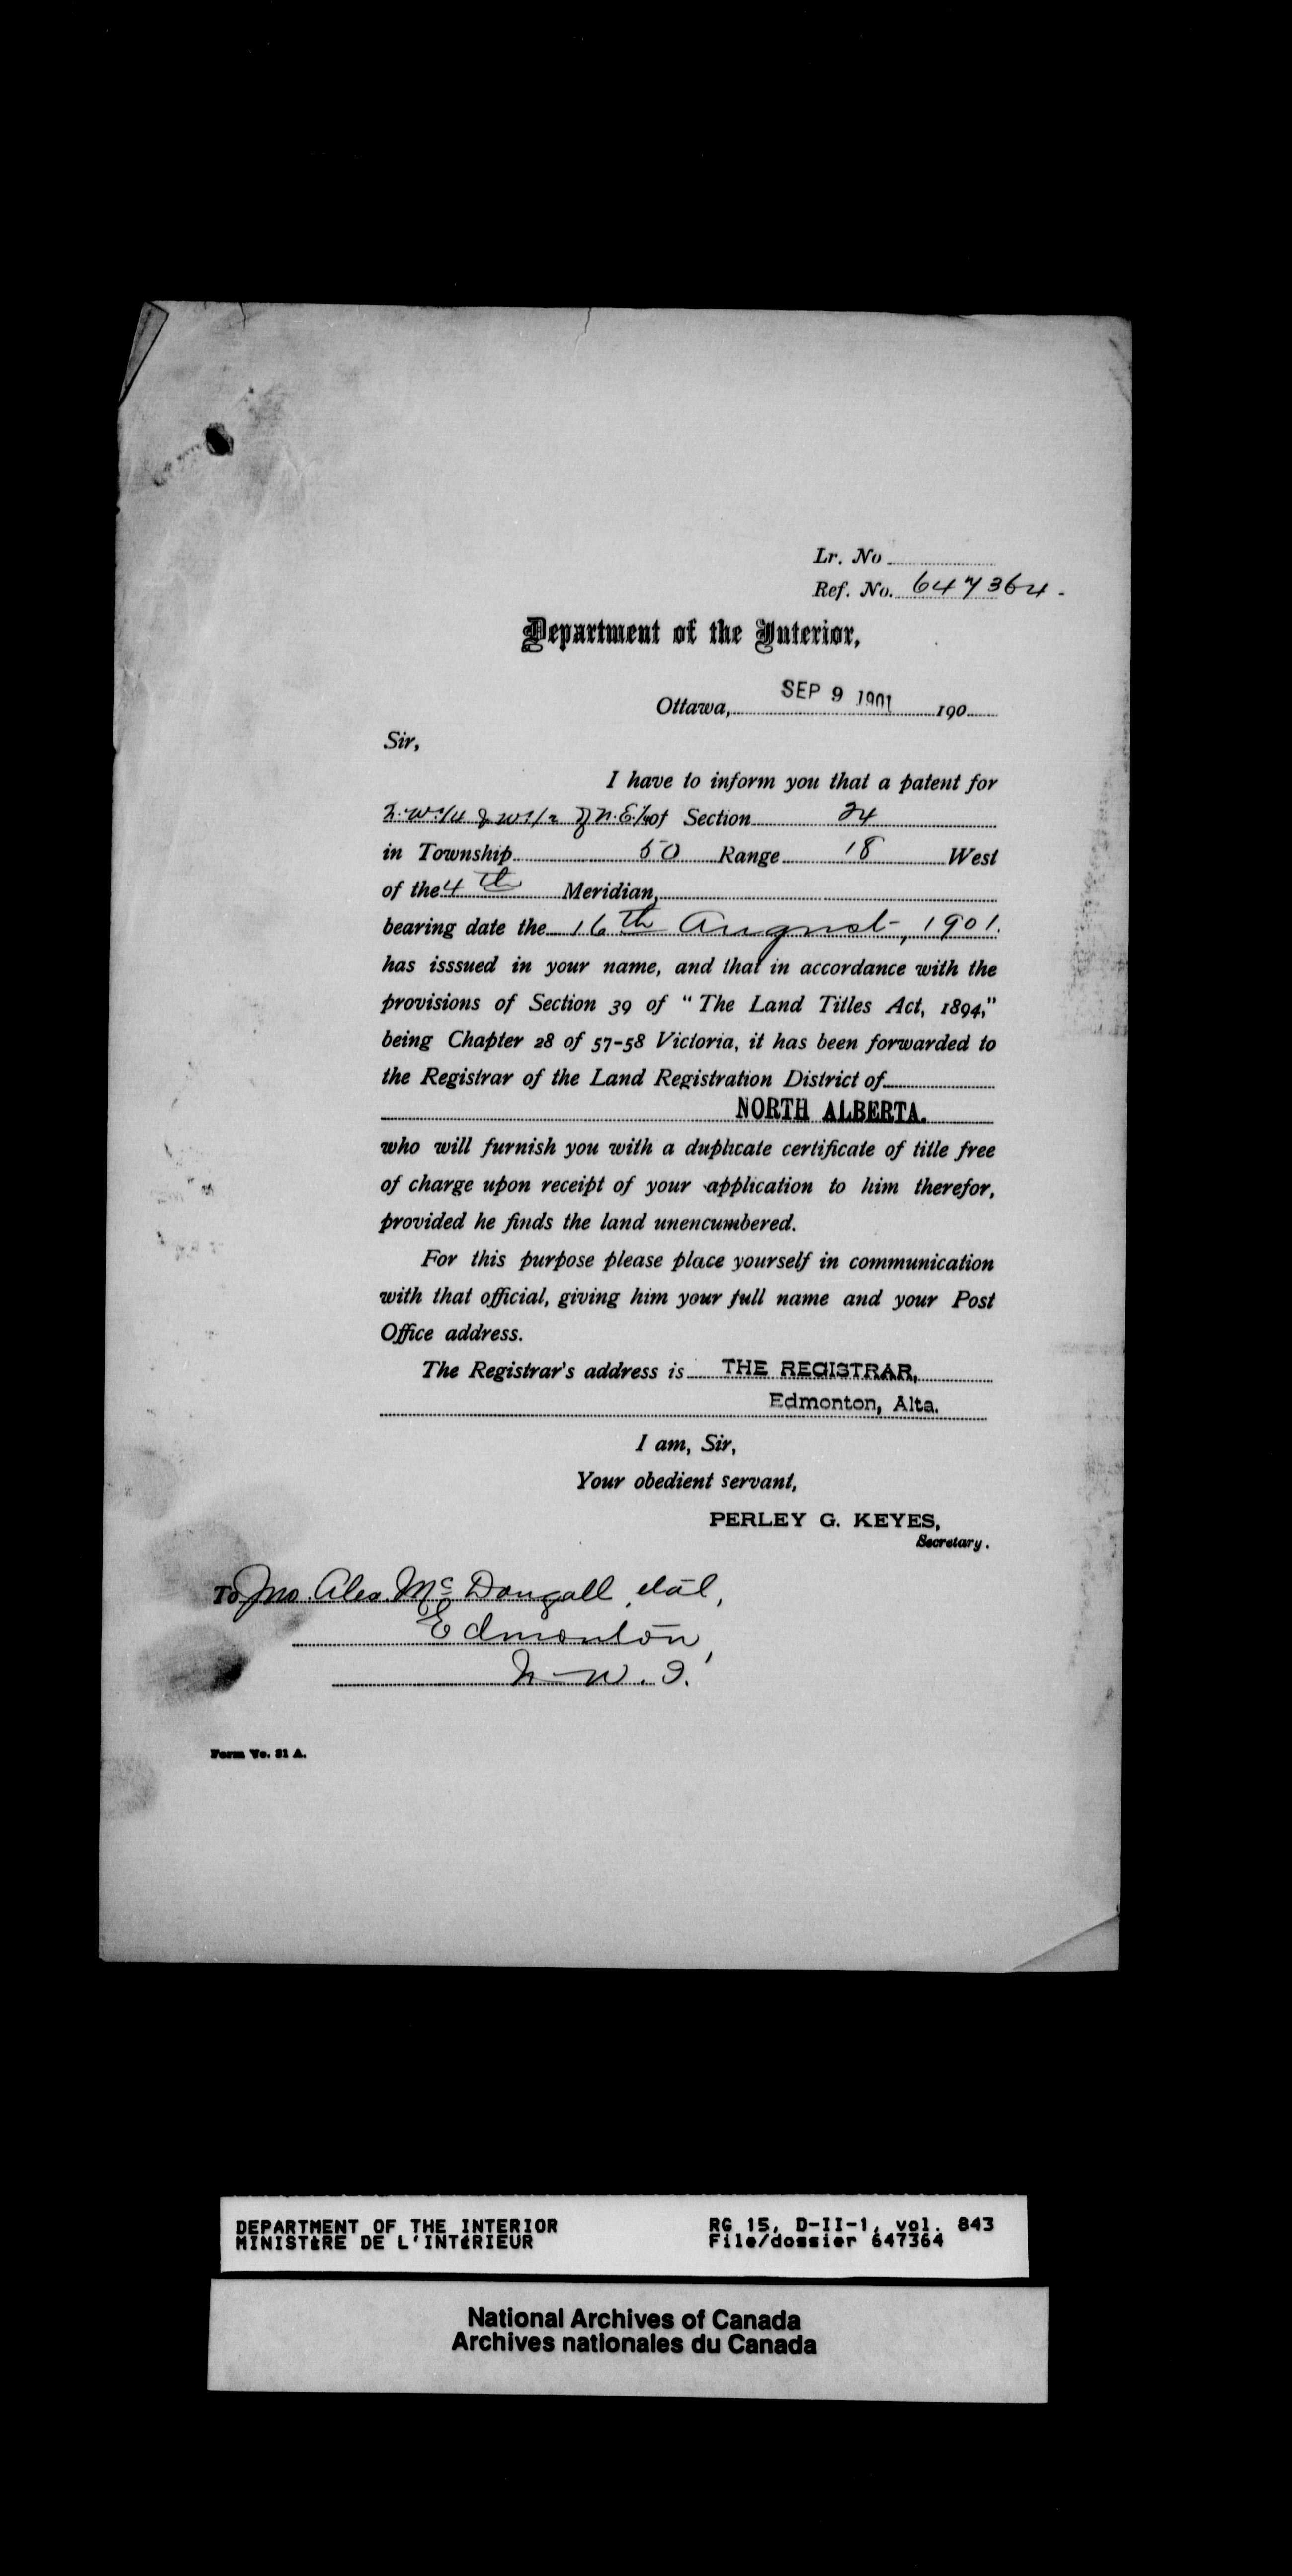 Lr. No
Ref. No. 647364.
Department of the Interior,
Ottawa, SEP 9 1901 190
Sir,
I have to inform you that a patent for
N.W.1/4 & W1/2 of N.E.1/4 of Section 24
in Township 50 Range 18 West
of the 4th Meridian,
bearing date the 16th August, 1901.
has isssued in your name, and that in accordance with the
provisions of Section 39 of "The Land Titles Act, 1894,"
being Chapter 28 of 57-58 Victoria, it has been forwarded to
the Registrar of the Land Registration District of
NORTH ALBERTA.
who will furnish you with a duplicate certificate of title free
of charge upon receipt of your application to him therefor,
provided he finds the land unencumbered.
For this purpose please place yourself in communication
with that official, giving him your full name and your Post
Office address.
The Registrar's address is THE REGISTRAR,
Edmonton, Alta.
I am, Sir,
Your obedient servant,
PERLEY G. KEYES,
Secretary.
To Jno. Alex. McDougall, etal,
Edmonton,
N.W.T.
Form No. 31 A.
DEPARTMENT OF THE INTERIOR RG 15, D-II-1, vol. 843
MINISTÈRE DE L'INTÉRIEUR File/dossier 647364
National Archives of Canada
Archives nationales du Canada